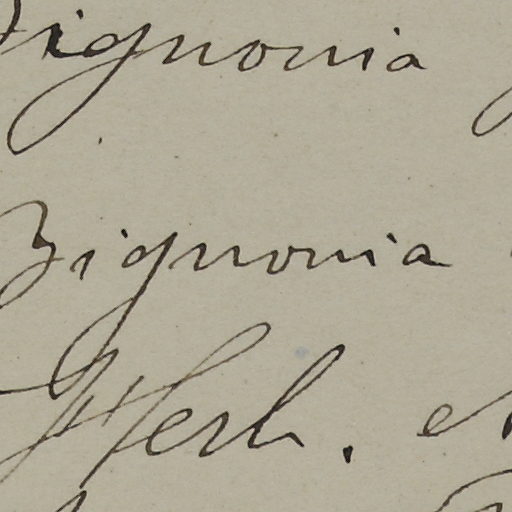 Bignonia
Bignonia
Herb.